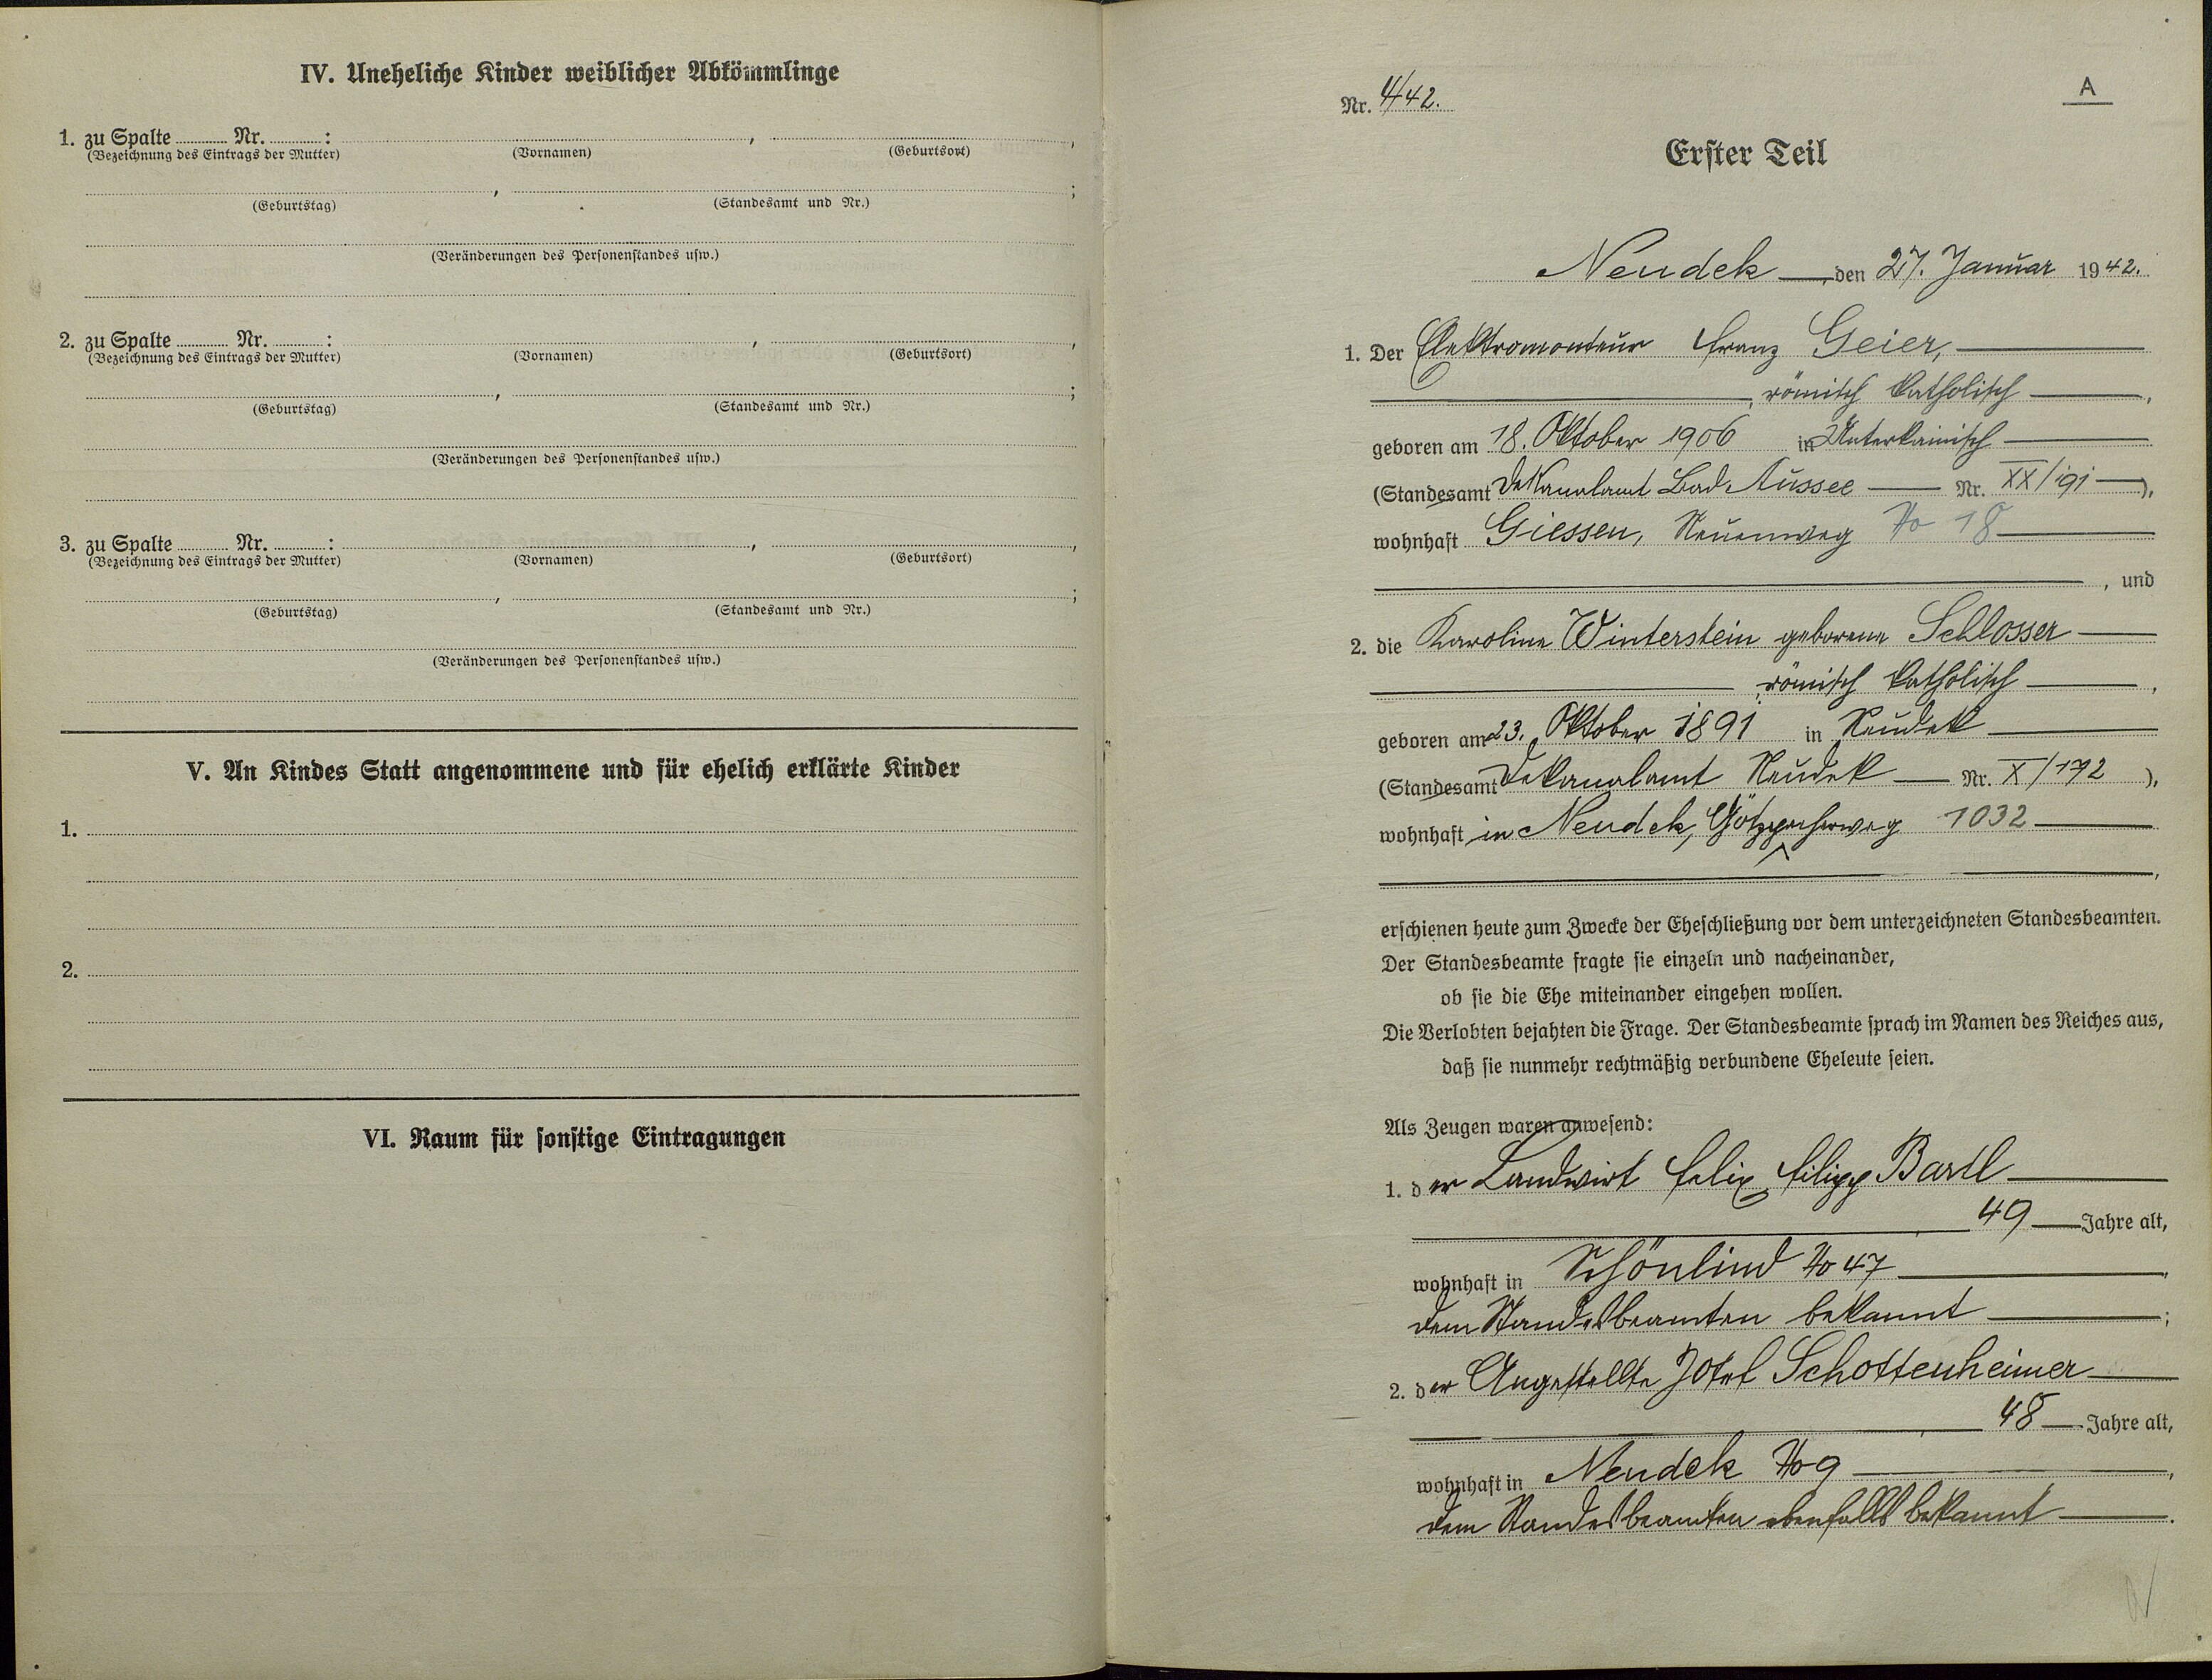 IV. Uneheliche Kinder weiblicher Abkömmlinge
1. zu Spalte Nr. : , ,
(Bezeichnung des Eintrags der Mutter) (Vornamen) (Geburtsort)
, ;
(Geburtstag) (Standesamt und Nr.)
(Veränderungen des Personenstandes usw.)
2. zu Spalte Nr. : , ,
(Bezeichnung des Eintrags der Mutter) (Vornamen) (Geburtsort)
, ;
(Geburtstag) (Standesamt und Nr.)
(Veränderungen des Personenstandes usw.)
3. zu Spalte Nr. : , ,
(Bezeichnung des Eintrags der Mutter) (Vornamen) (Geburtsort)
, ;
(Geburtstag) (Standesamt und Nr.)
(Veränderungen des Personenstandes usw.)
V. An Kindes Statt angenommene und für ehelich erklärte Kinder
1.
2.
VI. Raum für sonstige Eintragungen
A
Nr. 4/42.
Erster Teil
Neudek, den 27. Januar 1942.
1. Der Elektromonteur Franz Geier,
, römisch katholisch ,
geboren am 18. Oktober 1906 in Unterkainisch
(Standesamt Dekanalamt Bad Aussee Nr. XX/191 ),
wohnhaft Giessen, Neuenweg No 18
, und
2. die Karoline Winterstein geborene Schlosser
, römisch katholisch ,
geboren am 23. Oktober 1891 in Neudek
(Standesamt Dekanalamt Neudek Nr. X/172 ),
wohnhaft in Neudek, 1032
,
erschienen heute zum Zwecke der Eheschließung vor dem unterzeichneten Standesbeamten.
Der Standesbeamte fragte sie einzeln und nacheinander,
ob sie die Ehe miteinander eingehen wollen.
Die Verlobten bejahten die Frage. Der Standesbeamte sprach im Namen des Reiches aus,
daß sie nunmehr rechtmäßig verbundene Eheleute seien.
Als Zeugen waren anwesend:
1. der Landwirt Felix Filipp Bartl
49 Jahre alt,
wohnhaft in Schönlind No 47 ,
dem Standesbeamten bekannt ;
2. der Angestellte Josef Schottenheimer
48 Jahre alt,
wohnhaft in Neudek No 9 ,
dem Standesbeamten ebenfalls bekannt .